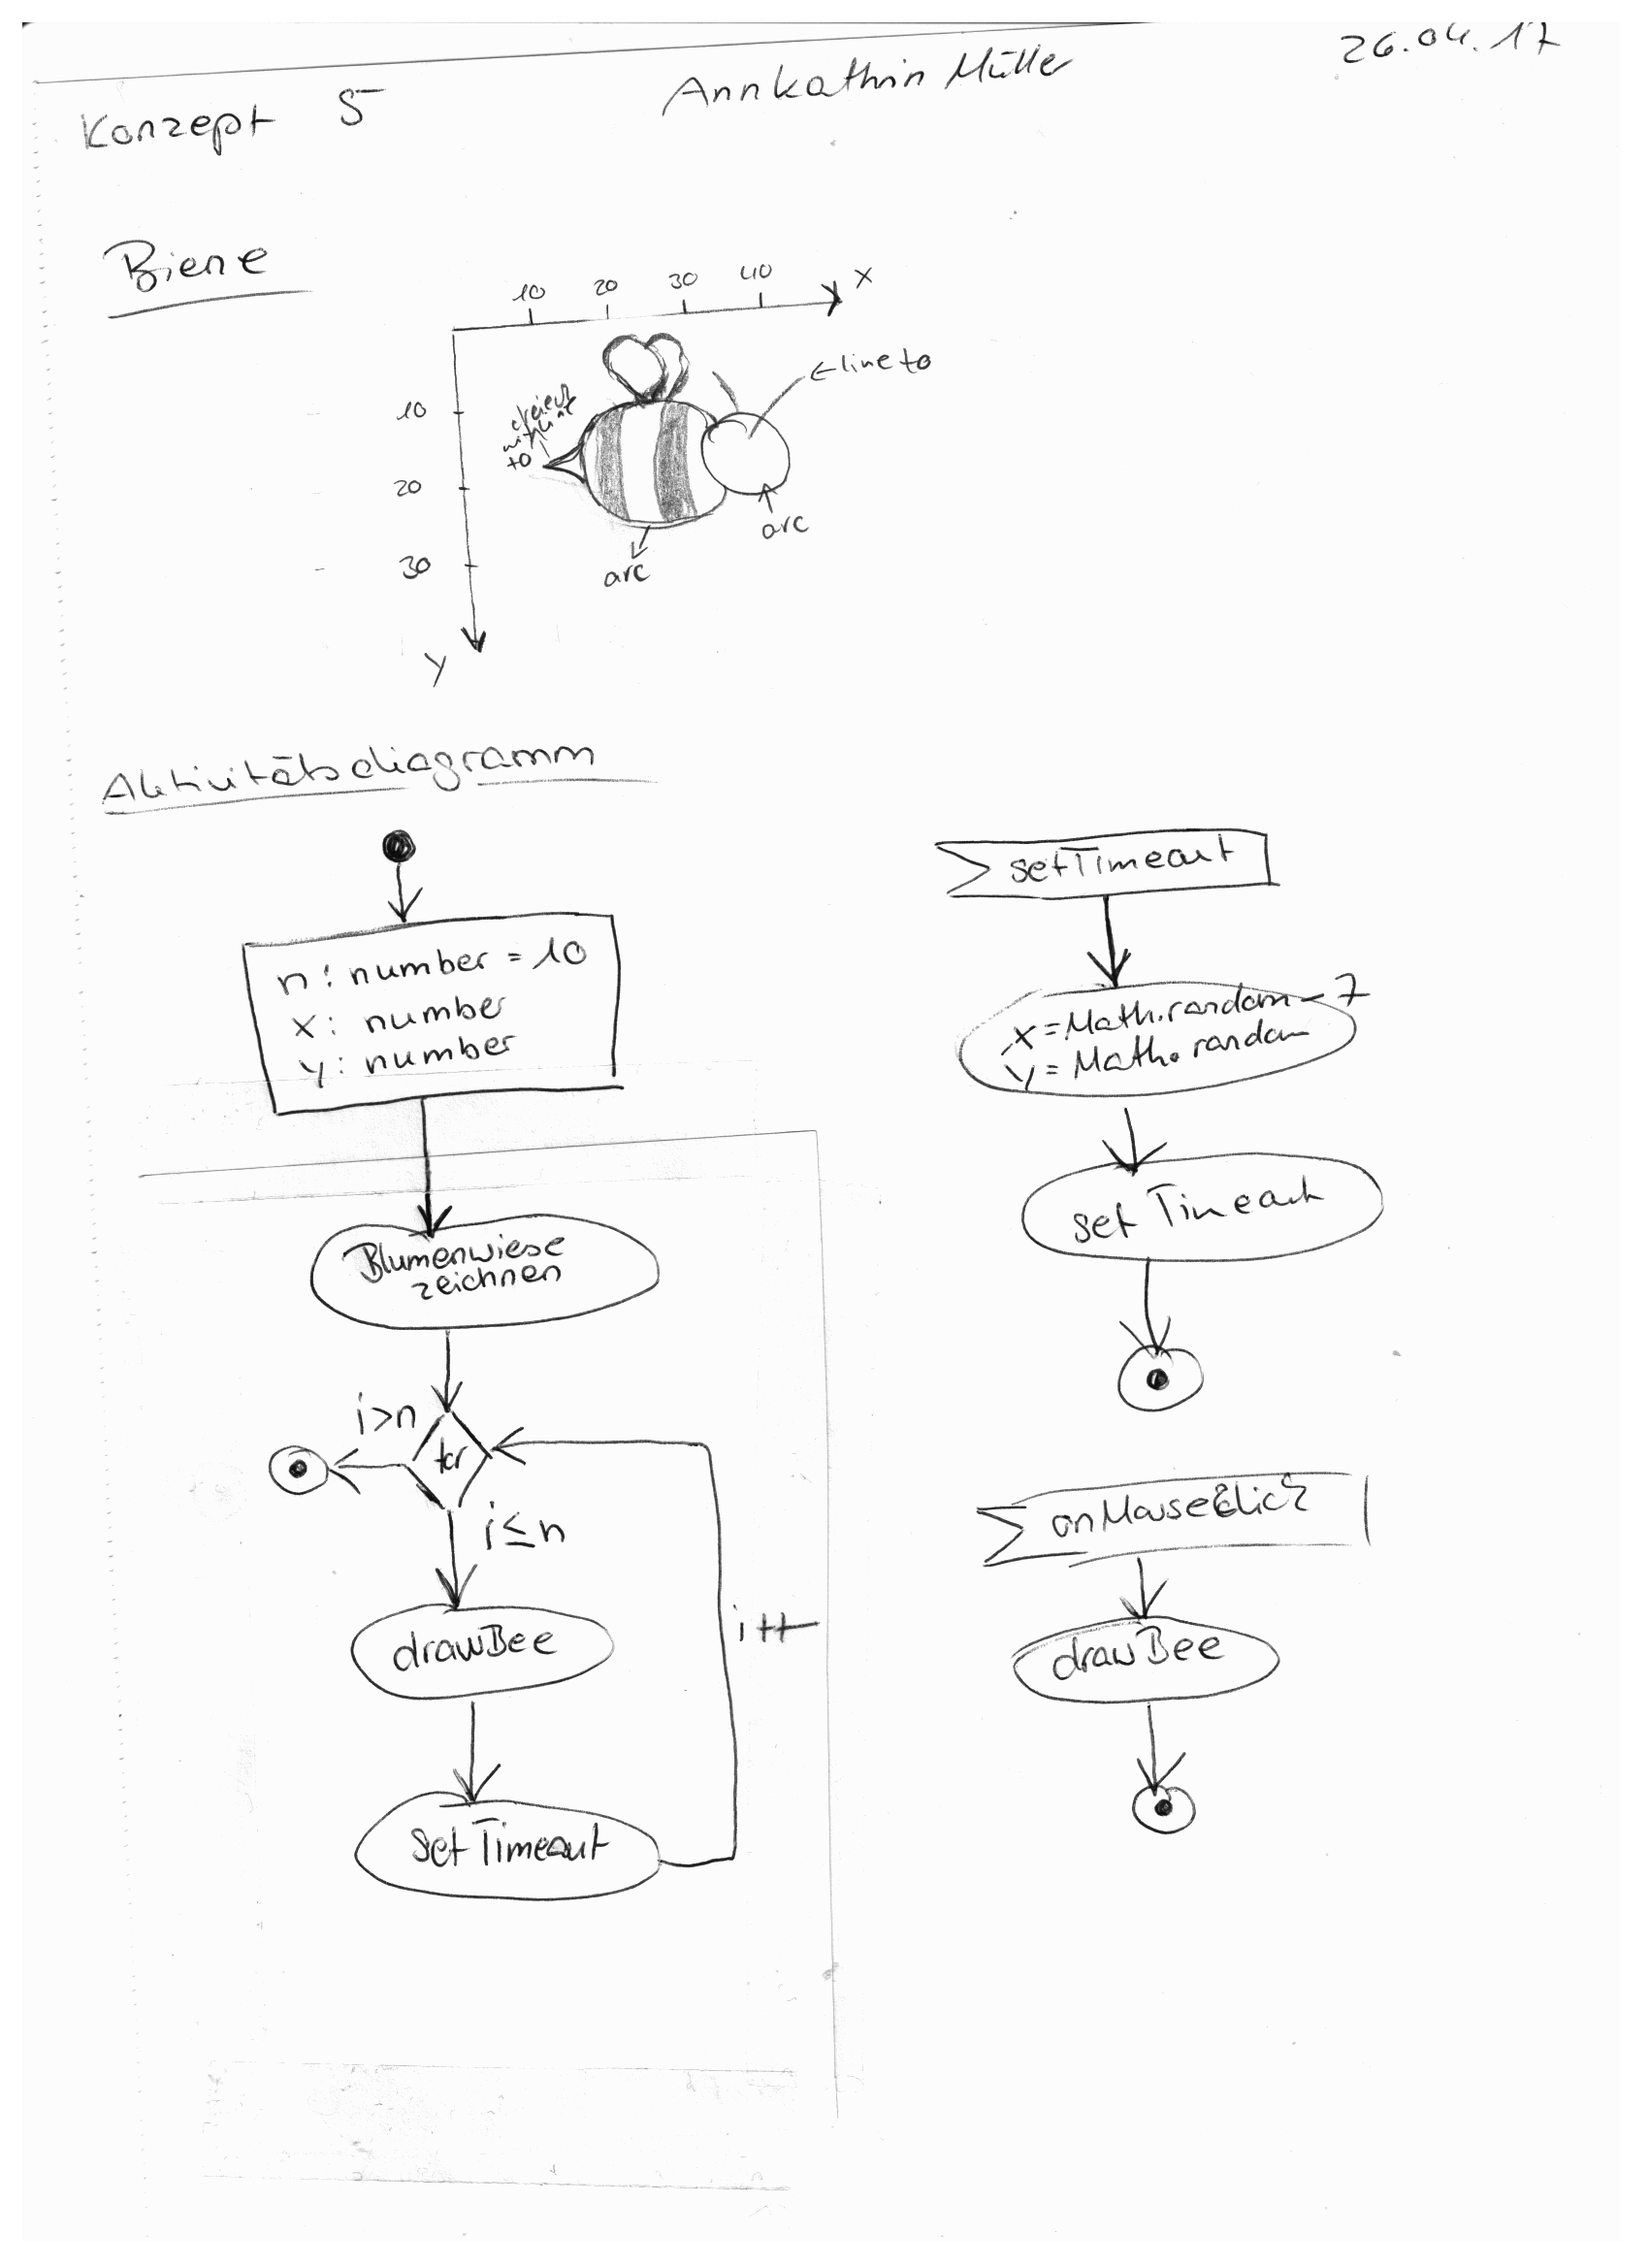 Konzept 5
Annkathrin Müller
26.04.17
Biene
10 20 30 40 x
← line to
dreieck
mit line
to
10
20
30
arc
arc
y
Aktivitätsdiagramm
n: number = 10
x: number
y: number
Blumenwiese
zeichnen
i>n
for
i≤n
drawBee
i++
setTimeout
setTimeout
x = Math.random - 7
y = Math.random
set Timeout
onMouseClick
drawBee